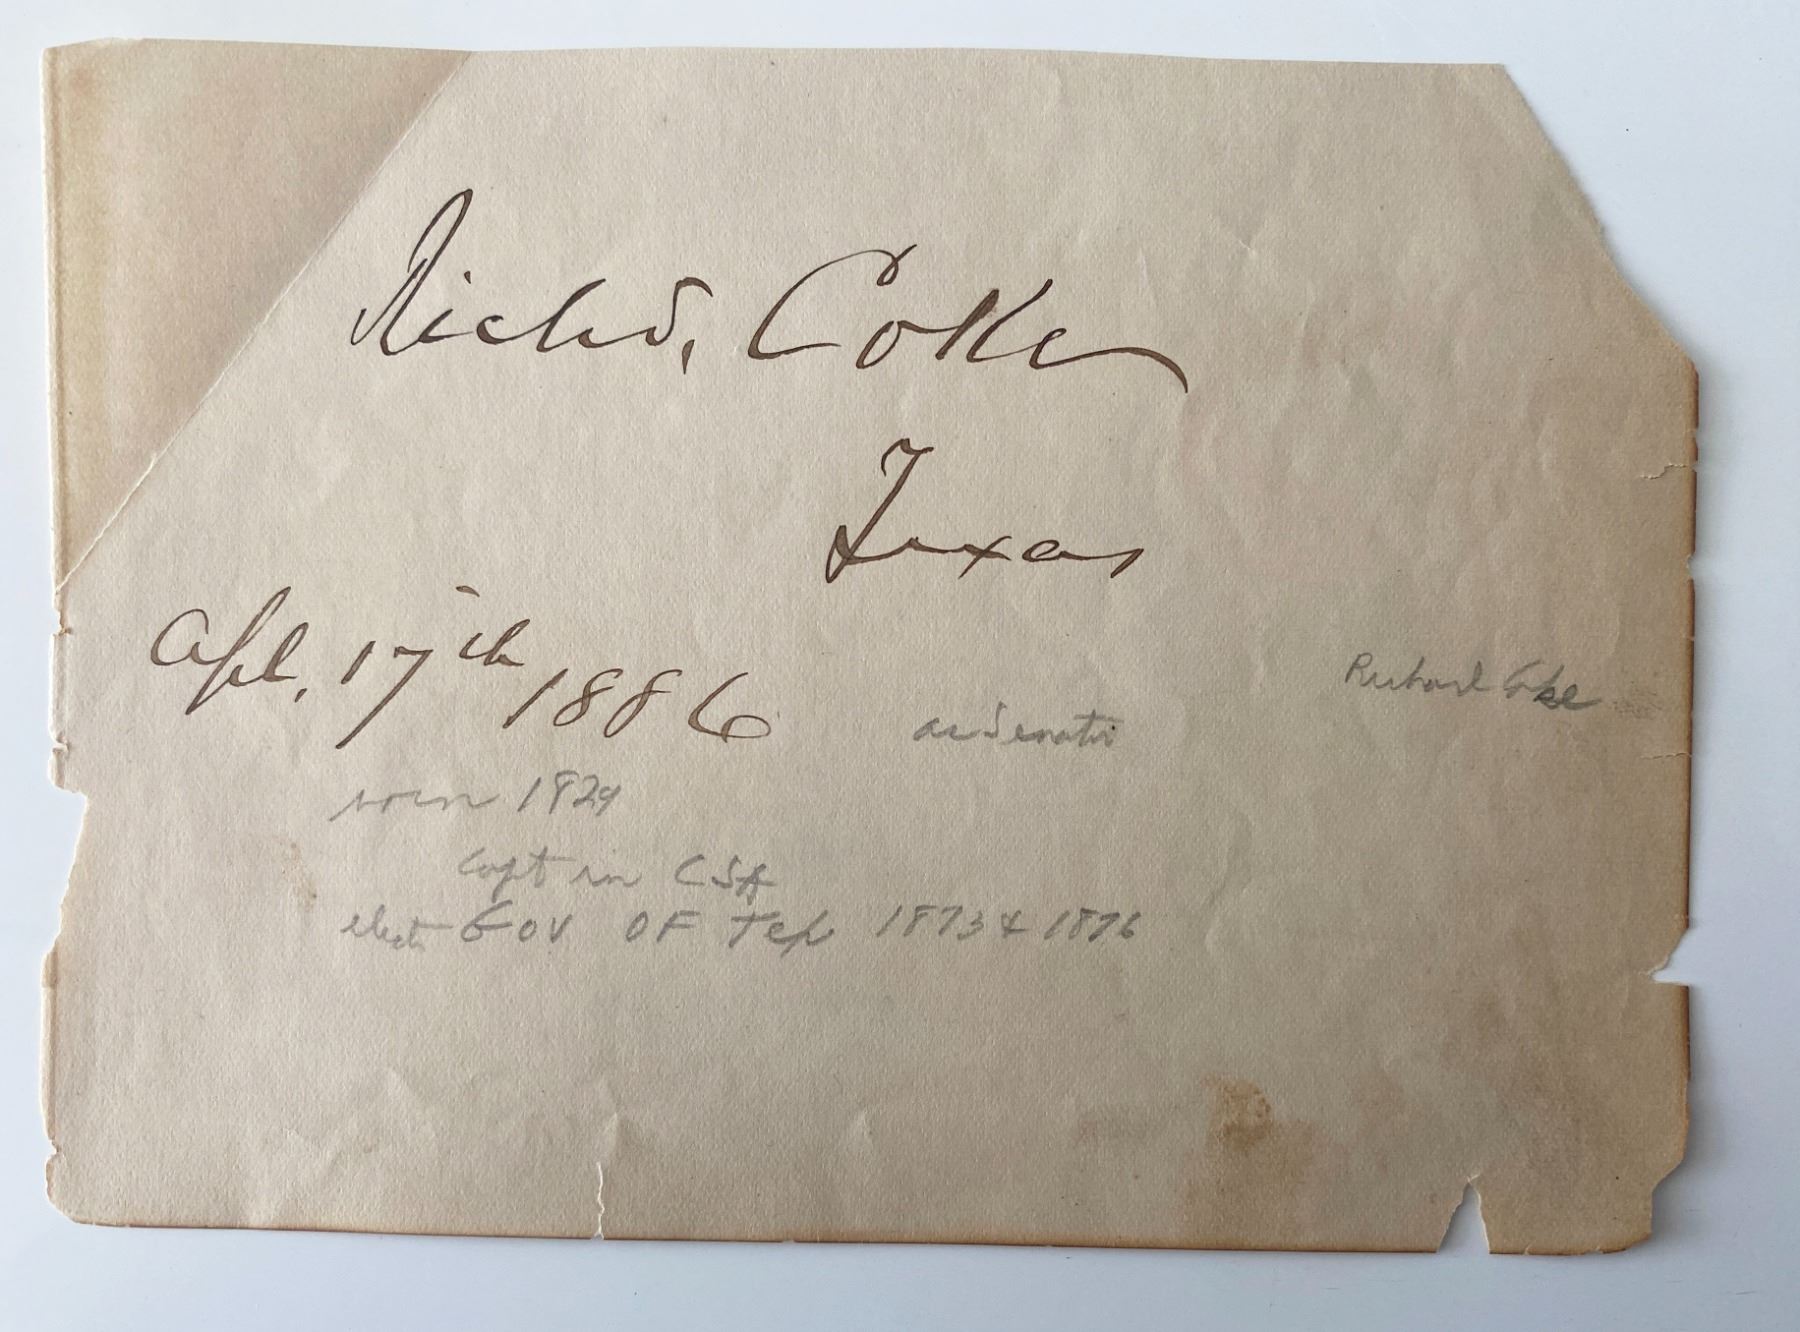 Richd, Coke
Texas
Apl, 17th 1886
Richard Coke
as Senator
born 1829
Capt in CSA
elect Gov OF Tex 1873 & 1876